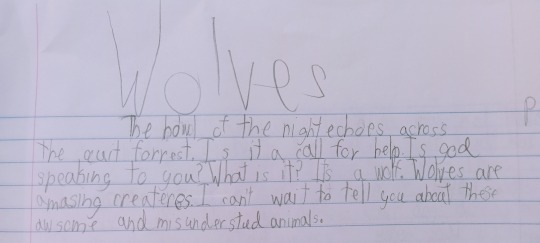 Wolves
The howl of the night echoes across
the quit forrest. Is it a call for help Is god
speaking to you? What is it? It's a wolf. Wolves are
amasing createres. I can't wait to tell you about these
awsome and misunderstud animals.
P